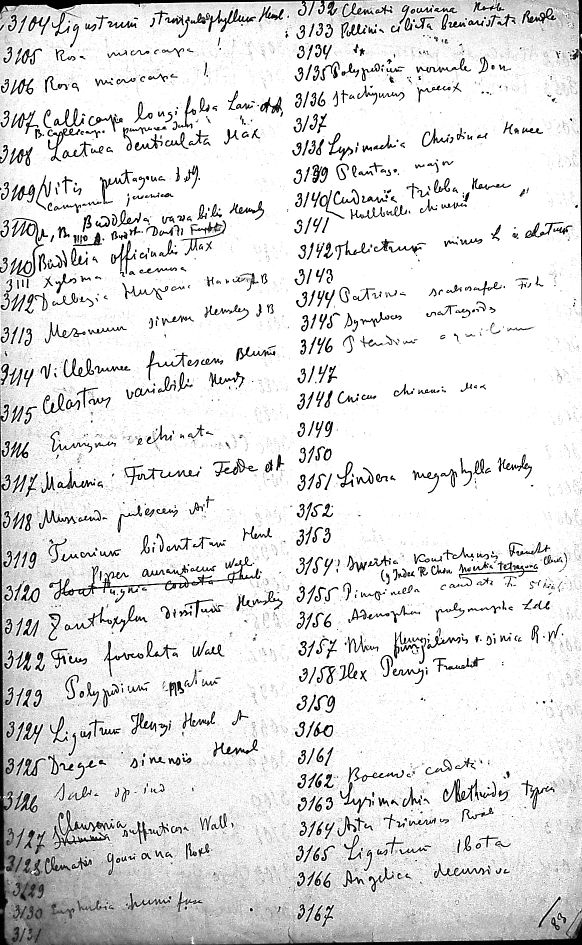 3104 Ligustrum strongylophyllum Hemsl.
3105 Rosa microcarpa !
3106 Rosa microcarpa !
3107 Callicarpa longifolia Lam.
B. Callicarpa purpurea Juss
3108 Lactuca denticulata Max
3109 Vitis pentagona
Campanum javanica
3110 A, B. Buddleia variabilis Hemsley
3110
3110 Buddleia officinalis Max
3111 Xylosma racemosa
3112 Dalbergia Hupeana Hance
3113 Mezoneum sinense Hemsley
3114 Villebrunea frutescens Blume
3115 Celastrus variabilis Hemsley
3116 Euonymus echinata
3117 Mahonia Fortunei Fedde
3118 Mussaenda pubescens Ait
3119 Teucrium bidentatum Hemsl
Piper aurantiacum Wall
3120 Houttuynia cordata Thunb
3121 Zanthoxylum dissitum Hemsley
3122 Ficus foveolata Wall
3123 Polypodium
3124 Ligustrum Henryi Hemsl
3125 Dregea sinensis Hemsl
3126 Sabia sp. ind
Clausenia
3127 suffruticosa Wall.
3128 Clematis gouriana Roxb
3129
3130 Euphorbia humifusa
3131
3132 Clematis gouriana Roxb
3133 Pollinia ciliata breviaristata Rendle
3134
3135 Polypodium normale Don
3136 Stachyurus praecox
3137
3138 Lysimachia Christinae Hance
3139 Plantago major
3140 Cudrania triloba Hance
Holboellia chinensis
3141
3142 Thalictrum minus L elatum
3143
3144 Patrinia scabiosaefol. Fisch
3145 Symplocos crataegoides
3146 Pteridium aquilinum
3147
3148 Cnicus chinensis Max
3149
3150
3151 Lindera megaphylla Hemsley
3152
3153
3154 Swertia Kouytchensis Franchet
3155 Pimpinella
3156 Adenophora polymorpha Ledb
3157 Rhus punjabensis v. sinica R. W.
3158 Ilex Pernyi Franchet
3159
3160
3161
3162 Bocconia cordata
3163 Lysimachia clethroides typica
3164 Aster trinervius Roxb
3165 Ligustrum Ibota
3166 Angelica decursiva
3167
83